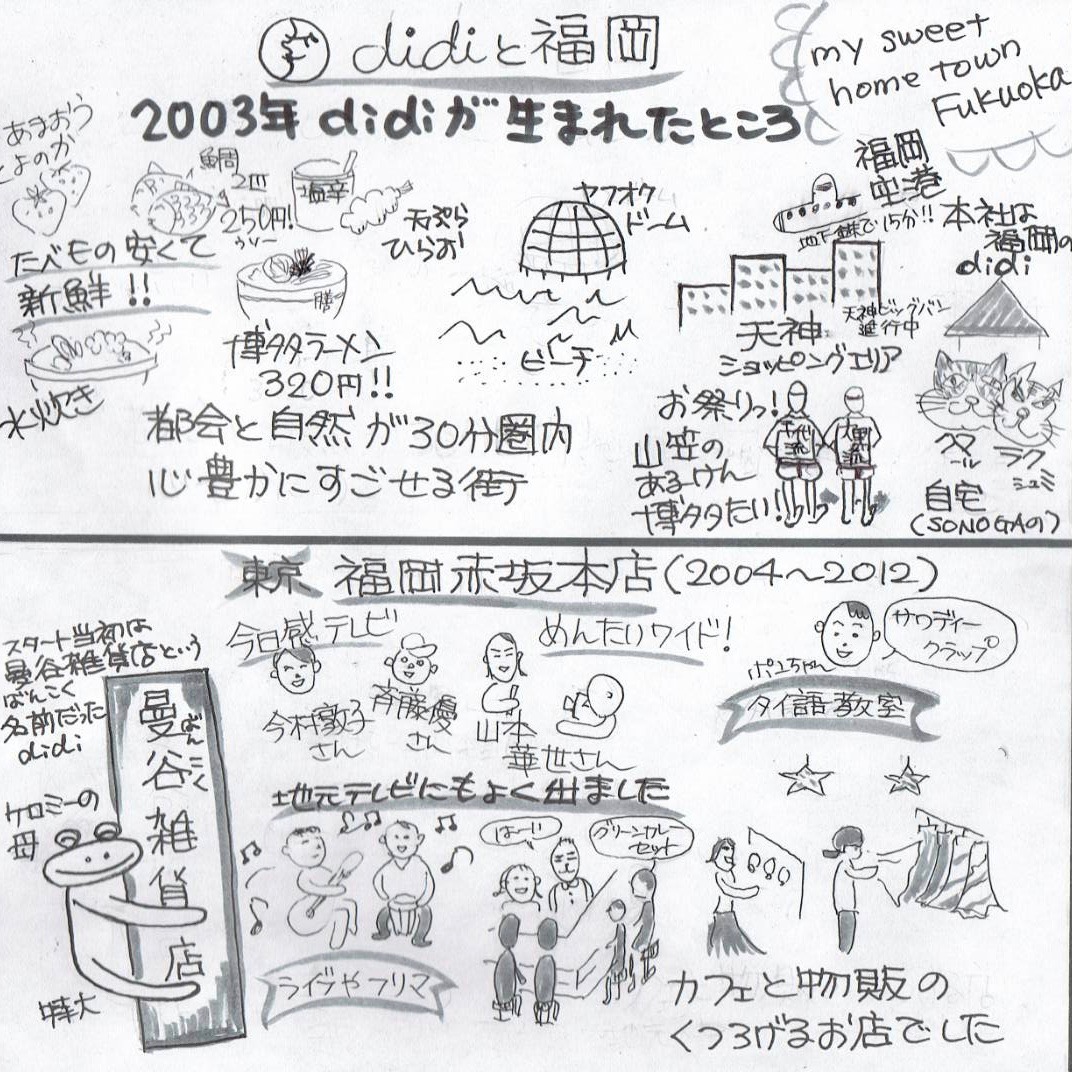 didiと福岡
my sweet
home town
Fukuoka
2003年 didiが生まれたところ
あまおう
とよのか
鯛
2皿
250円!
塩辛
天ぷら
ひらお
ヤフオク
ドーム
福岡
空港
地下鉄で15分!!
本社は
福岡の
didi
たべもの安くて
新鮮!!
水炊き
博多ラーメン
320円!!
ビーチ
天神
ショッピングエリア
天神ビッグバン
進行中
都会と自然が30分圏内
心豊かにすごせる街
お祭りっ!
山笠の
あるけん
博多たい!!
千代
流
大黒
流
ラク
シュミ
自宅
(SONOGAの)
東京 福岡赤坂本店(2004〜2012)
スタート当初は
曼谷雑貨店という
ばんこく
名前だった
didi
今日感テレビ
めんたいワイド!
サワディー
クラップ
ポユちゃん
タイ語教室
今村敦子
さん
斉藤優
さん
山本
華世さん
地元テレビにもよく出ました
ケロミーの
母
特大
曼谷雑貨店
ばんこく
は〜い
グリーンカレー
セット
ライブやフリマ
カフェと物販の
くつろげるお店でした